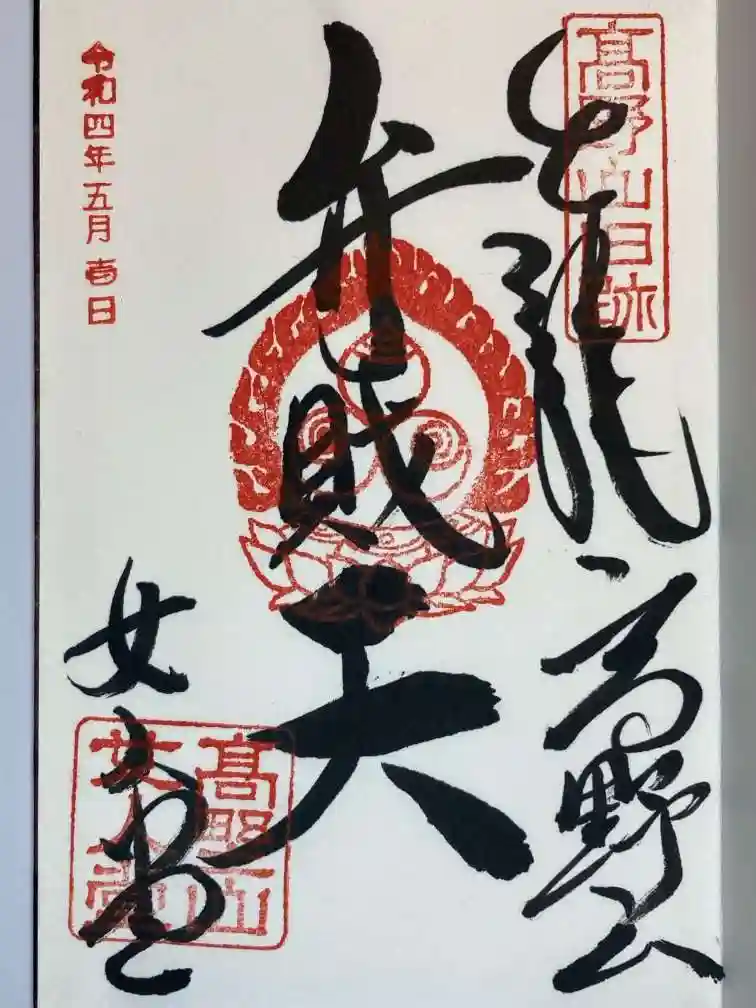 高野山旧跡
龍 高野山
弁財天
令和四年五月吉日
女人堂
高野山
女人堂